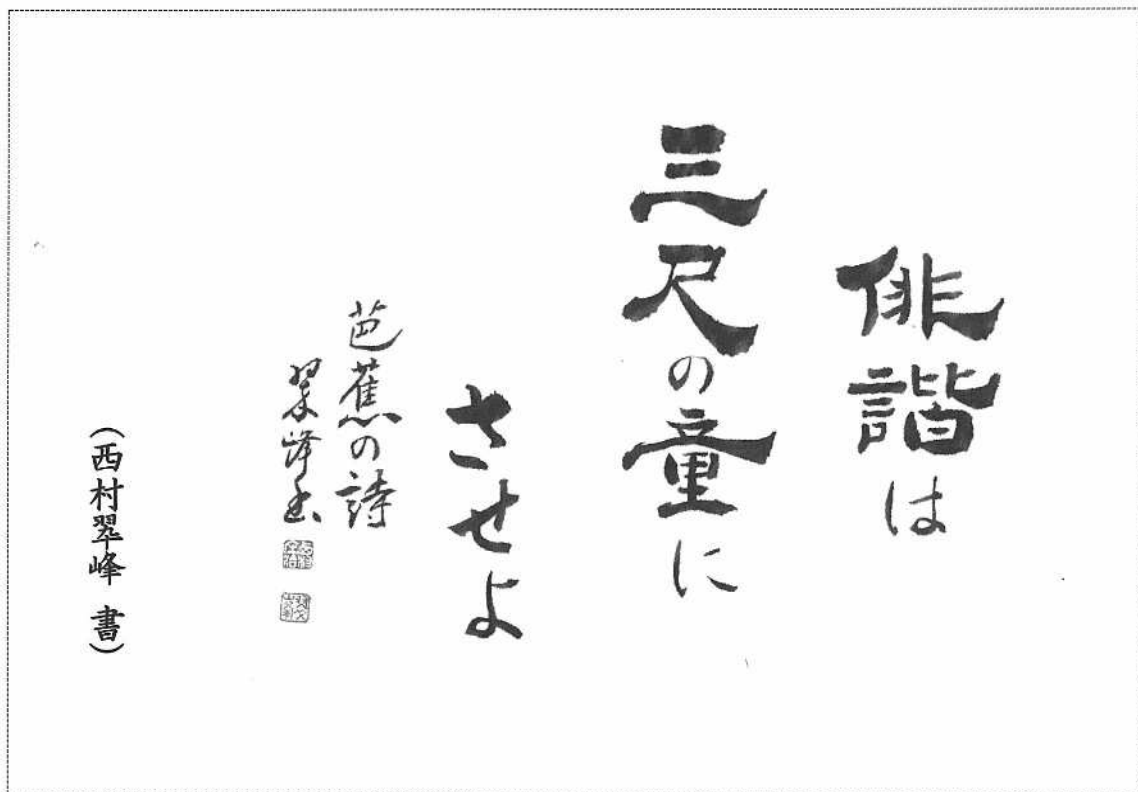 俳諧は
三尺の童に
させよ
芭蕉の詩
翠峰書
(西村翠峰 書)